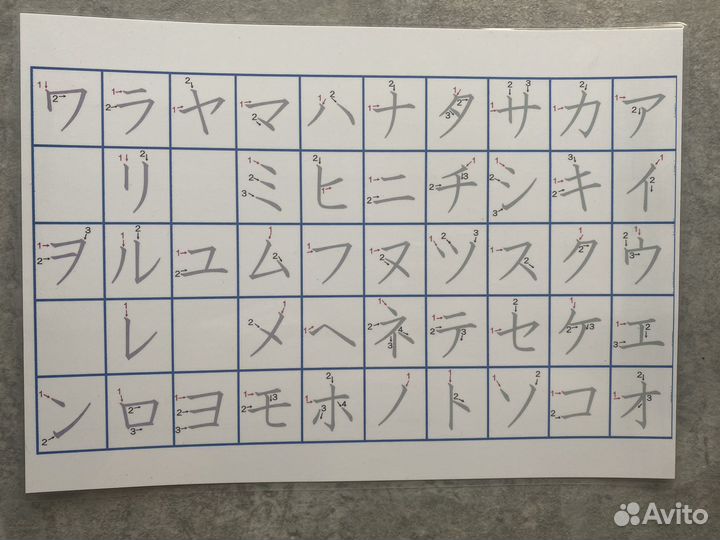 ワ ラ ヤ マ ハ ナ タ サ カ ア
リ ミ ヒ ニ チ シ キ イ
ヲ ル ユ ム フ ヌ ツ ス ク ウ
レ メ ヘ ネ テ セ ケ エ
ン ロ ヨ モ ホ ノ ト ソ コ オ
Avito